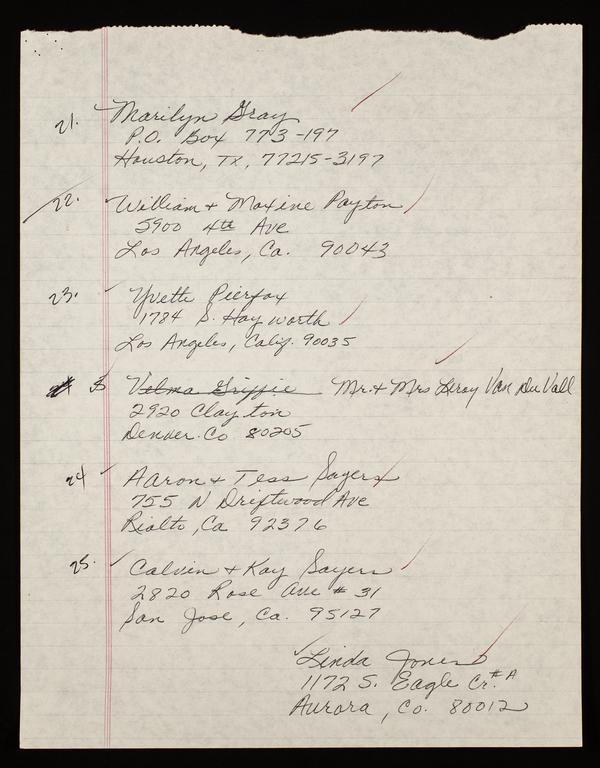 21. Marilyn Gray
P.O. Box 773-197
Houston, Tx, 77215-3197
22. William + Maxine Payton
5900 4th Ave
Los Angeles, Ca. 90043
23. Yvette Pierfax
1784 S. Hayworth
Los Angeles, Calif. 90035
Velma Griffie Mr. & Mrs Leroy Van Du Vall
2920 Clayton
Denver. Co 80205
24 Aaron + Tess Sayers
755 N Driftwood Ave
Rialto, Ca 92376
25. Calvin + Kay Sayers
2820 Rose Ave # 31
San Jose, Ca. 95127
Linda Jones
1172 S. Eagle Cr. #A
Aurora, Co. 80012